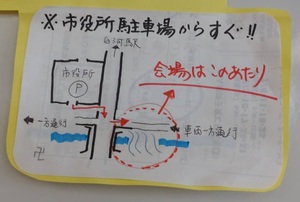 ※市役所駐車場からすぐ!!
白河駅
市役所
P
会場はこのあたり
一方通行
車両一方通行
卍